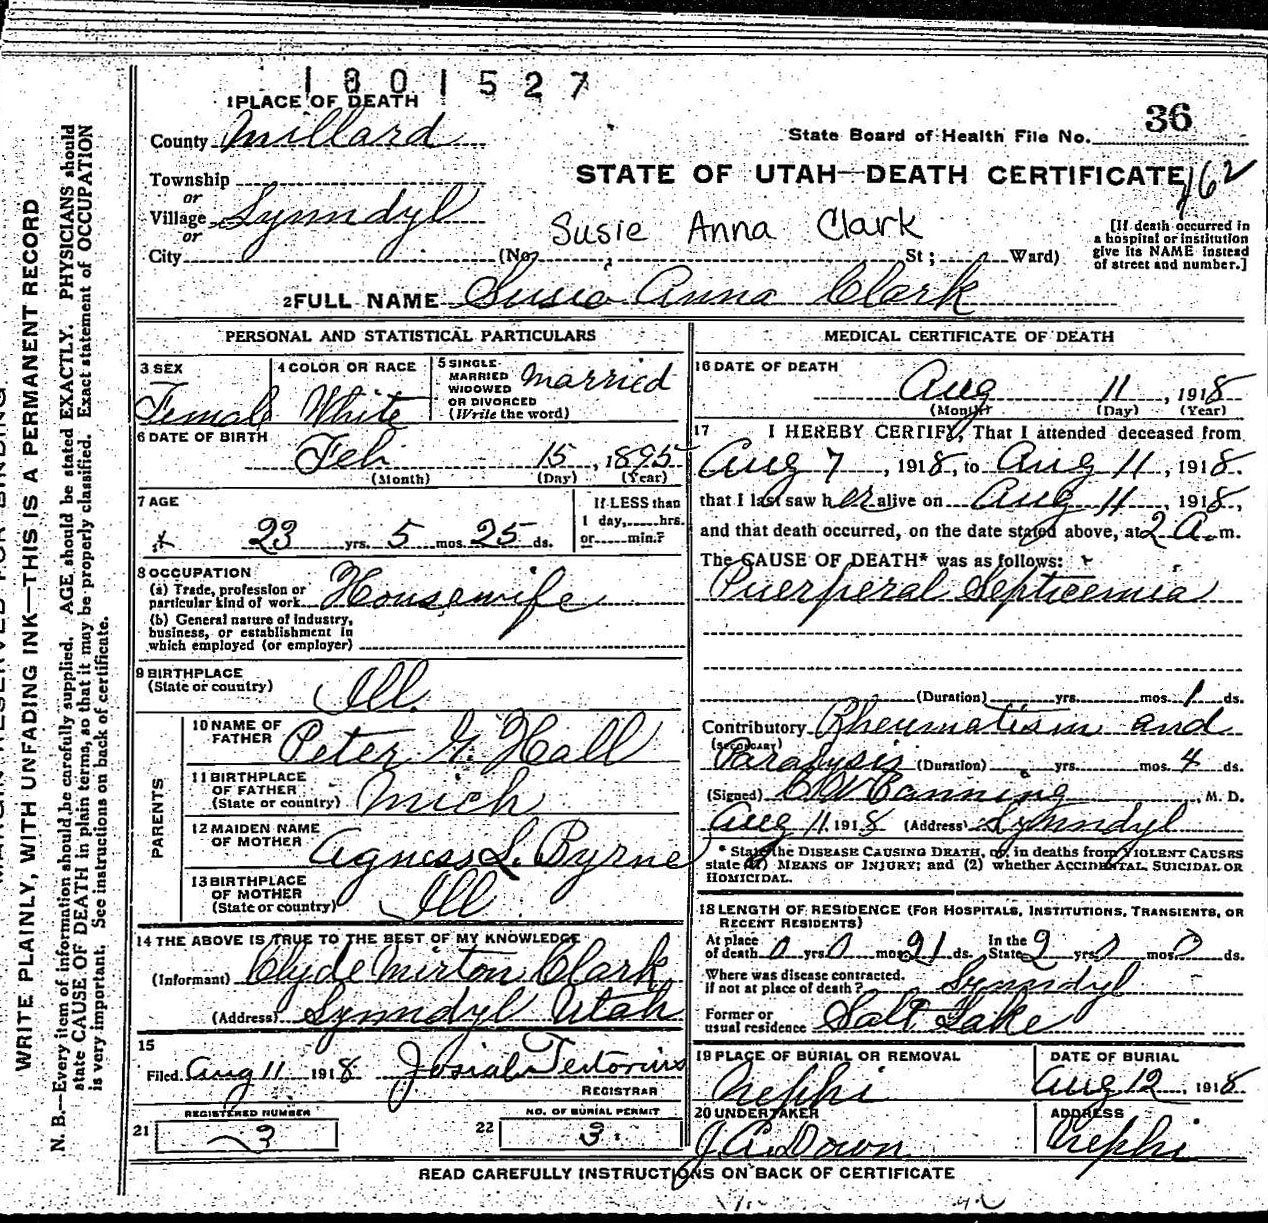 1801527
1 PLACE OF DEATH
County Millard
State Board of Health File No. 36
Township
or
Village Lynndyl
or
City
STATE OF UTAH—DEATH CERTIFICATE 162
Susie Anna Clark
(No. St; Ward)
[If death occurred in
a hospital or institution
give its NAME instead
of street and number.]
2 FULL NAME Susie Anna Clark
PERSONAL AND STATISTICAL PARTICULARS
3 SEX
Female
4 COLOR OR RACE
White
5 SINGLE-
MARRIED
WIDOWED
OR DIVORCED
(Write the word)
Married
6 DATE OF BIRTH
Feb 15, 1895
(Month) (Day) (Year)
7 AGE
23 yrs. 5 mos. 25 ds.
If LESS than
1 day, hrs.
or min.?
8 OCCUPATION
(a) Trade, profession or
particular kind of work Housewife
(b) General nature of industry,
business, or establishment in
which employed (or employer)
9 BIRTHPLACE
(State or country) Ill.
PARENTS
10 NAME OF
FATHER Peter G. Hall
11 BIRTHPLACE
OF FATHER
(State or country) Mich
12 MAIDEN NAME
OF MOTHER Agness L. Byrne
13 BIRTHPLACE
OF MOTHER
(State or country) Ill
14 THE ABOVE IS TRUE TO THE BEST OF MY KNOWLEDGE
(Informant) Clyde Mirton Clark
(Address) Lynndyl Utah
15
Filed Aug 11 1918 Josiah Tertorius
REGISTRAR
REGISTERED NUMBER
21 3
NO. OF BURIAL PERMIT
22 3
MEDICAL CERTIFICATE OF DEATH
16 DATE OF DEATH
Aug 11, 1918
(Month) (Day) (Year)
17 I HEREBY CERTIFY, That I attended deceased from
Aug 7, 1918, to Aug 11, 1918.
that I last saw her alive on Aug 11, 1918,
and that death occurred, on the date stated above, at 2 A. m.
The CAUSE OF DEATH* was as follows:
Puerperal Septicemia
(Duration) yrs. mos. 1 ds.
Contributory Rheumatism and
(SECONDARY)
Paralysis (Duration) yrs. mos. 4 ds.
(Signed) C W Canning, M. D.
Aug 11 1918 (Address) Lynndyl
* State the DISEASE CAUSING DEATH, or, in deaths from VIOLENT CAUSES
state (1) MEANS OF INJURY; and (2) whether ACCIDENTAL, SUICIDAL OR
HOMICIDAL.
18 LENGTH OF RESIDENCE (FOR HOSPITALS, INSTITUTIONS, TRANSIENTS, OR
RECENT RESIDENTS)
At place
of death 0 yrs 0 mos 21 ds. In the
State 2 yrs mos 0 ds.
Where was disease contracted.
if not at place of death? Lynndyl
Former or
usual residence Salt Lake
19 PLACE OF BURIAL OR REMOVAL
Nephi
DATE OF BURIAL
Aug 12, 1918
20 UNDERTAKER
J. A. Down
ADDRESS
Nephi
READ CAREFULLY INSTRUCTIONS ON BACK OF CERTIFICATE
WRITE PLAINLY, WITH UNFADING INK—THIS IS A PERMANENT RECORD
N. B.—Every item of information should be carefully supplied. AGE should be stated EXACTLY. PHYSICIANS should
state CAUSE OF DEATH in plain terms, so that it may be properly classified. Exact statement of OCCUPATION
is very important. See instructions on back of certificate.